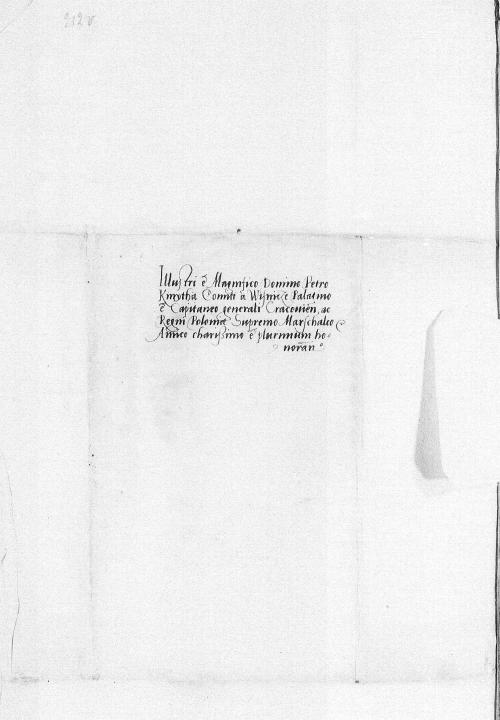 212v
Illustri & Magnifico Domino Petro
Kmytha Comiti a Wisnicze Palatino
& Capitaneo generali Cracovień, ac
Regni Polonię Supremo Marschalco
Amico charissimo & plurimum ho-
norań